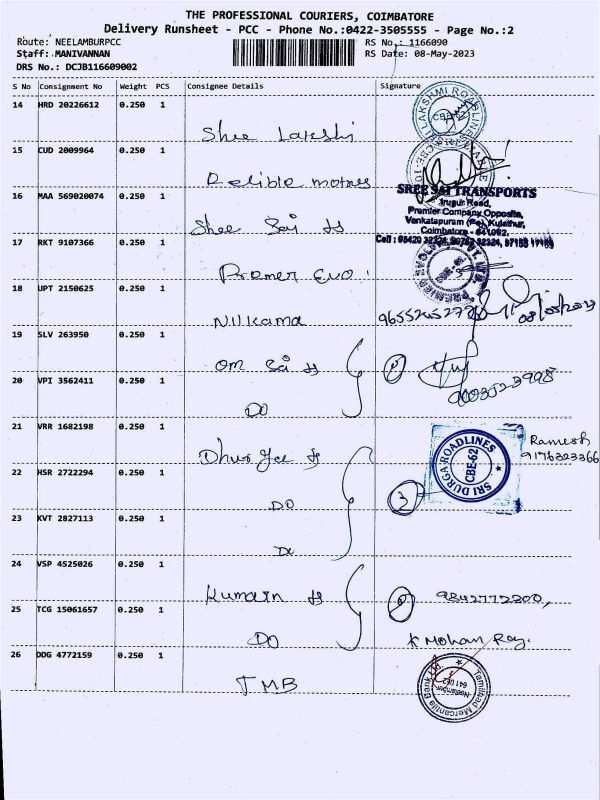 THE PROFESSIONAL COURIERS, COIMBATORE
Delivery Runsheet - PCC - Phone No.:0422-3505555 - Page No.:2
Route: NEELAMBURPCC
Staff: MANIVANNAN
DRS No.: DCJB116609002
RS No.: 1166090
RS Date: 08-May-2023
S No Consignment No Weight PCS Consignee Details Signature
14 HRD 20226612 0.250 1
Shee Lakshi
15 CUD 2009964 0.250 1
Relible motors
16 MAA 569020074 0.250 1
Shee Sai
SREE SAI TRANSPORTS
Irugur Road,
Premier Company Opposite,
Venkatapuram (Po), Kulathur,
Coimbatore - 641062.
17 RKT 9107366 0.250 1
Premer Evo
18 UPT 2150625 0.250 1
Nilkama
19 SLV 263950 0.250 1
Om Sai
20 VPI 3562411 0.250 1
DO
21 VRR 1682198 0.250 1
SRI DURGA ROADLINES
CBE-62
Ramesh
9176323366
22 HSR 2722294 0.250 1
DO
3
23 KVT 2827113 0.250 1
Do
24 VSP 4525026 0.250 1
Kumarn
9842772200,
25 TCG 15061657 0.250 1
DO
K Mohan Raj.
26 DDG 4772159 0.250 1
TMB
Tamilnad Mercantile Bank Ltd.